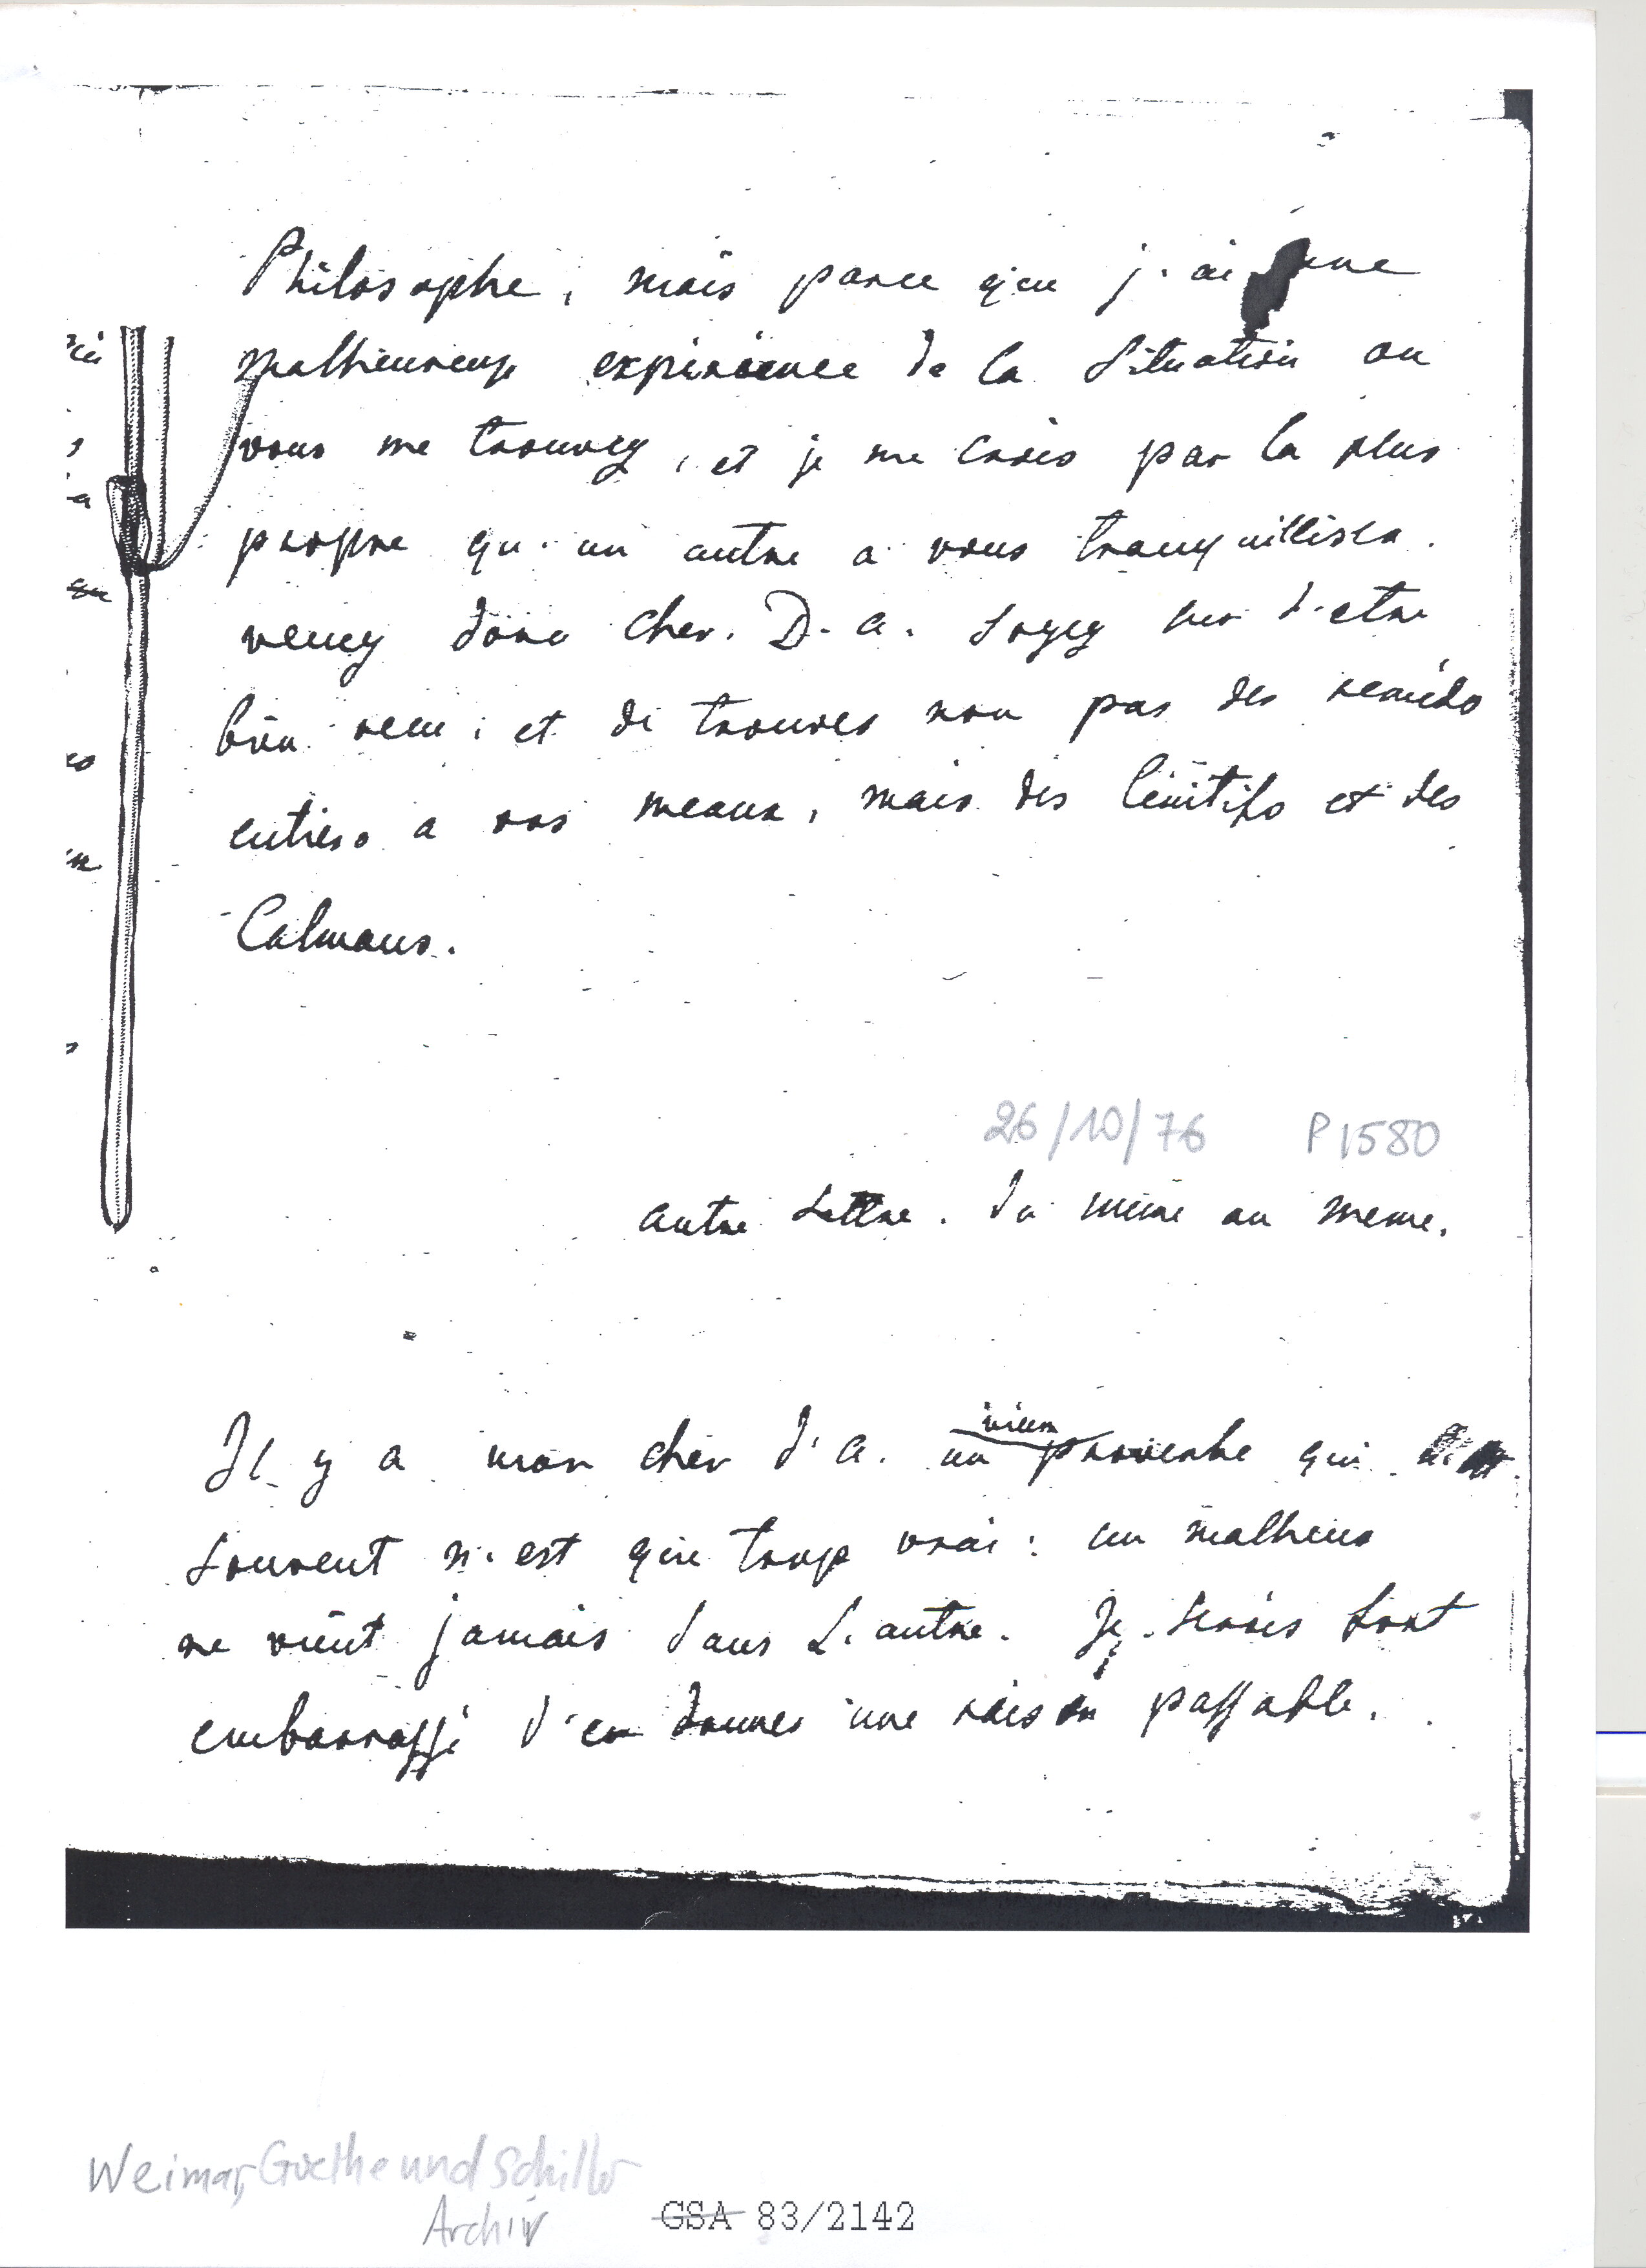 Philosophe, mais parce que j'ai une
malheureuse experience de la Situation ou
vous me trouvez, et je me crois par la plus
propre qu'un autre a vous tranquilliser.
venez donc cher. D. A. Soyez sur d'etre
bien venu; et de trouver non pas des remédes
entiers a vos meaux, mais des lénitifs et des
Calmans.
26/10/76 P1580
autre Lettre. du même au meme.
Il y a mon cher d'A. un vieux proverbe qui
souvent n'est que trop vrai: un malheur
ne vient jamais sans L'autre. Je serois fort
embarrassé d'en donner une raison passable.
Weimar, Goethe und Schiller
Archiv
GSA 83/2142